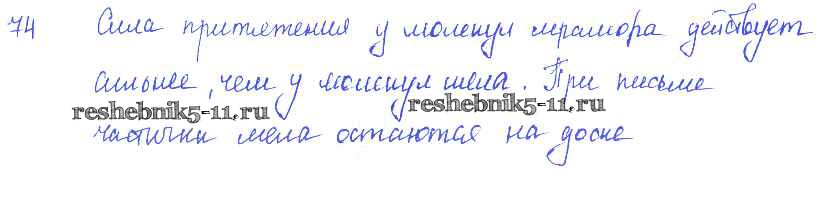 74 Сила притяжения у молекул мрамора действует
сильнее, чем у молекул мела. При письме
reshebnik5-11.ru reshebnik5-11.ru
частички мела остаются на доске